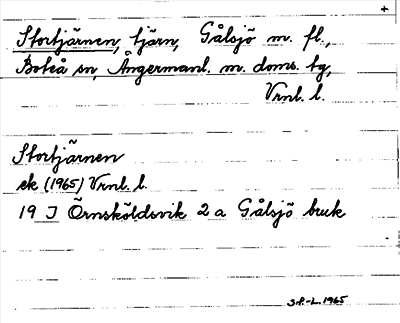 +
Stortjärnen, tjärn, Gålsjö m. fl.,
Boteå sn, Ångermanl. m. doms. tg,
Vrnl. l.
Stortjärnen
ek (1965) Vrnl. l.
19 J Örnsköldsvik 2 a Gålsjö bruk
1965